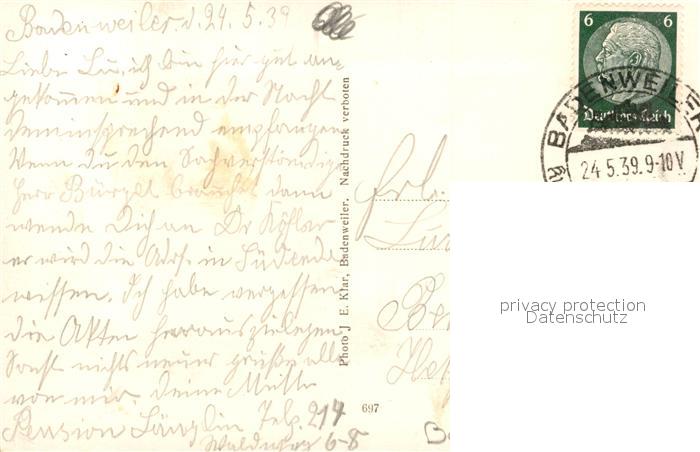 Badenweiler d 24.5.39
Liebe Lu, ich bin hier gut an-
gekommen und in der Nacht
dementsprechend empfangen
Wenn du den Sachverständig
Herr Bürgel brauchst dann
wende Dich an Dr Köhler
er wird die Adr. in
wissen. Ich habe vergessen
die Akten herauszulegen
Sonst nichts neues grüße alle
von mir. Deine Mutti
Pension Telf. 214
Waldweg 6-8
Photo J. E. Klar, Badenweiler. Nachdruck verboten
697
6 6
Deutsches Reich
BADENWEILER
24.5.39.9-10V
Frl.
privacy protection
Datenschutz